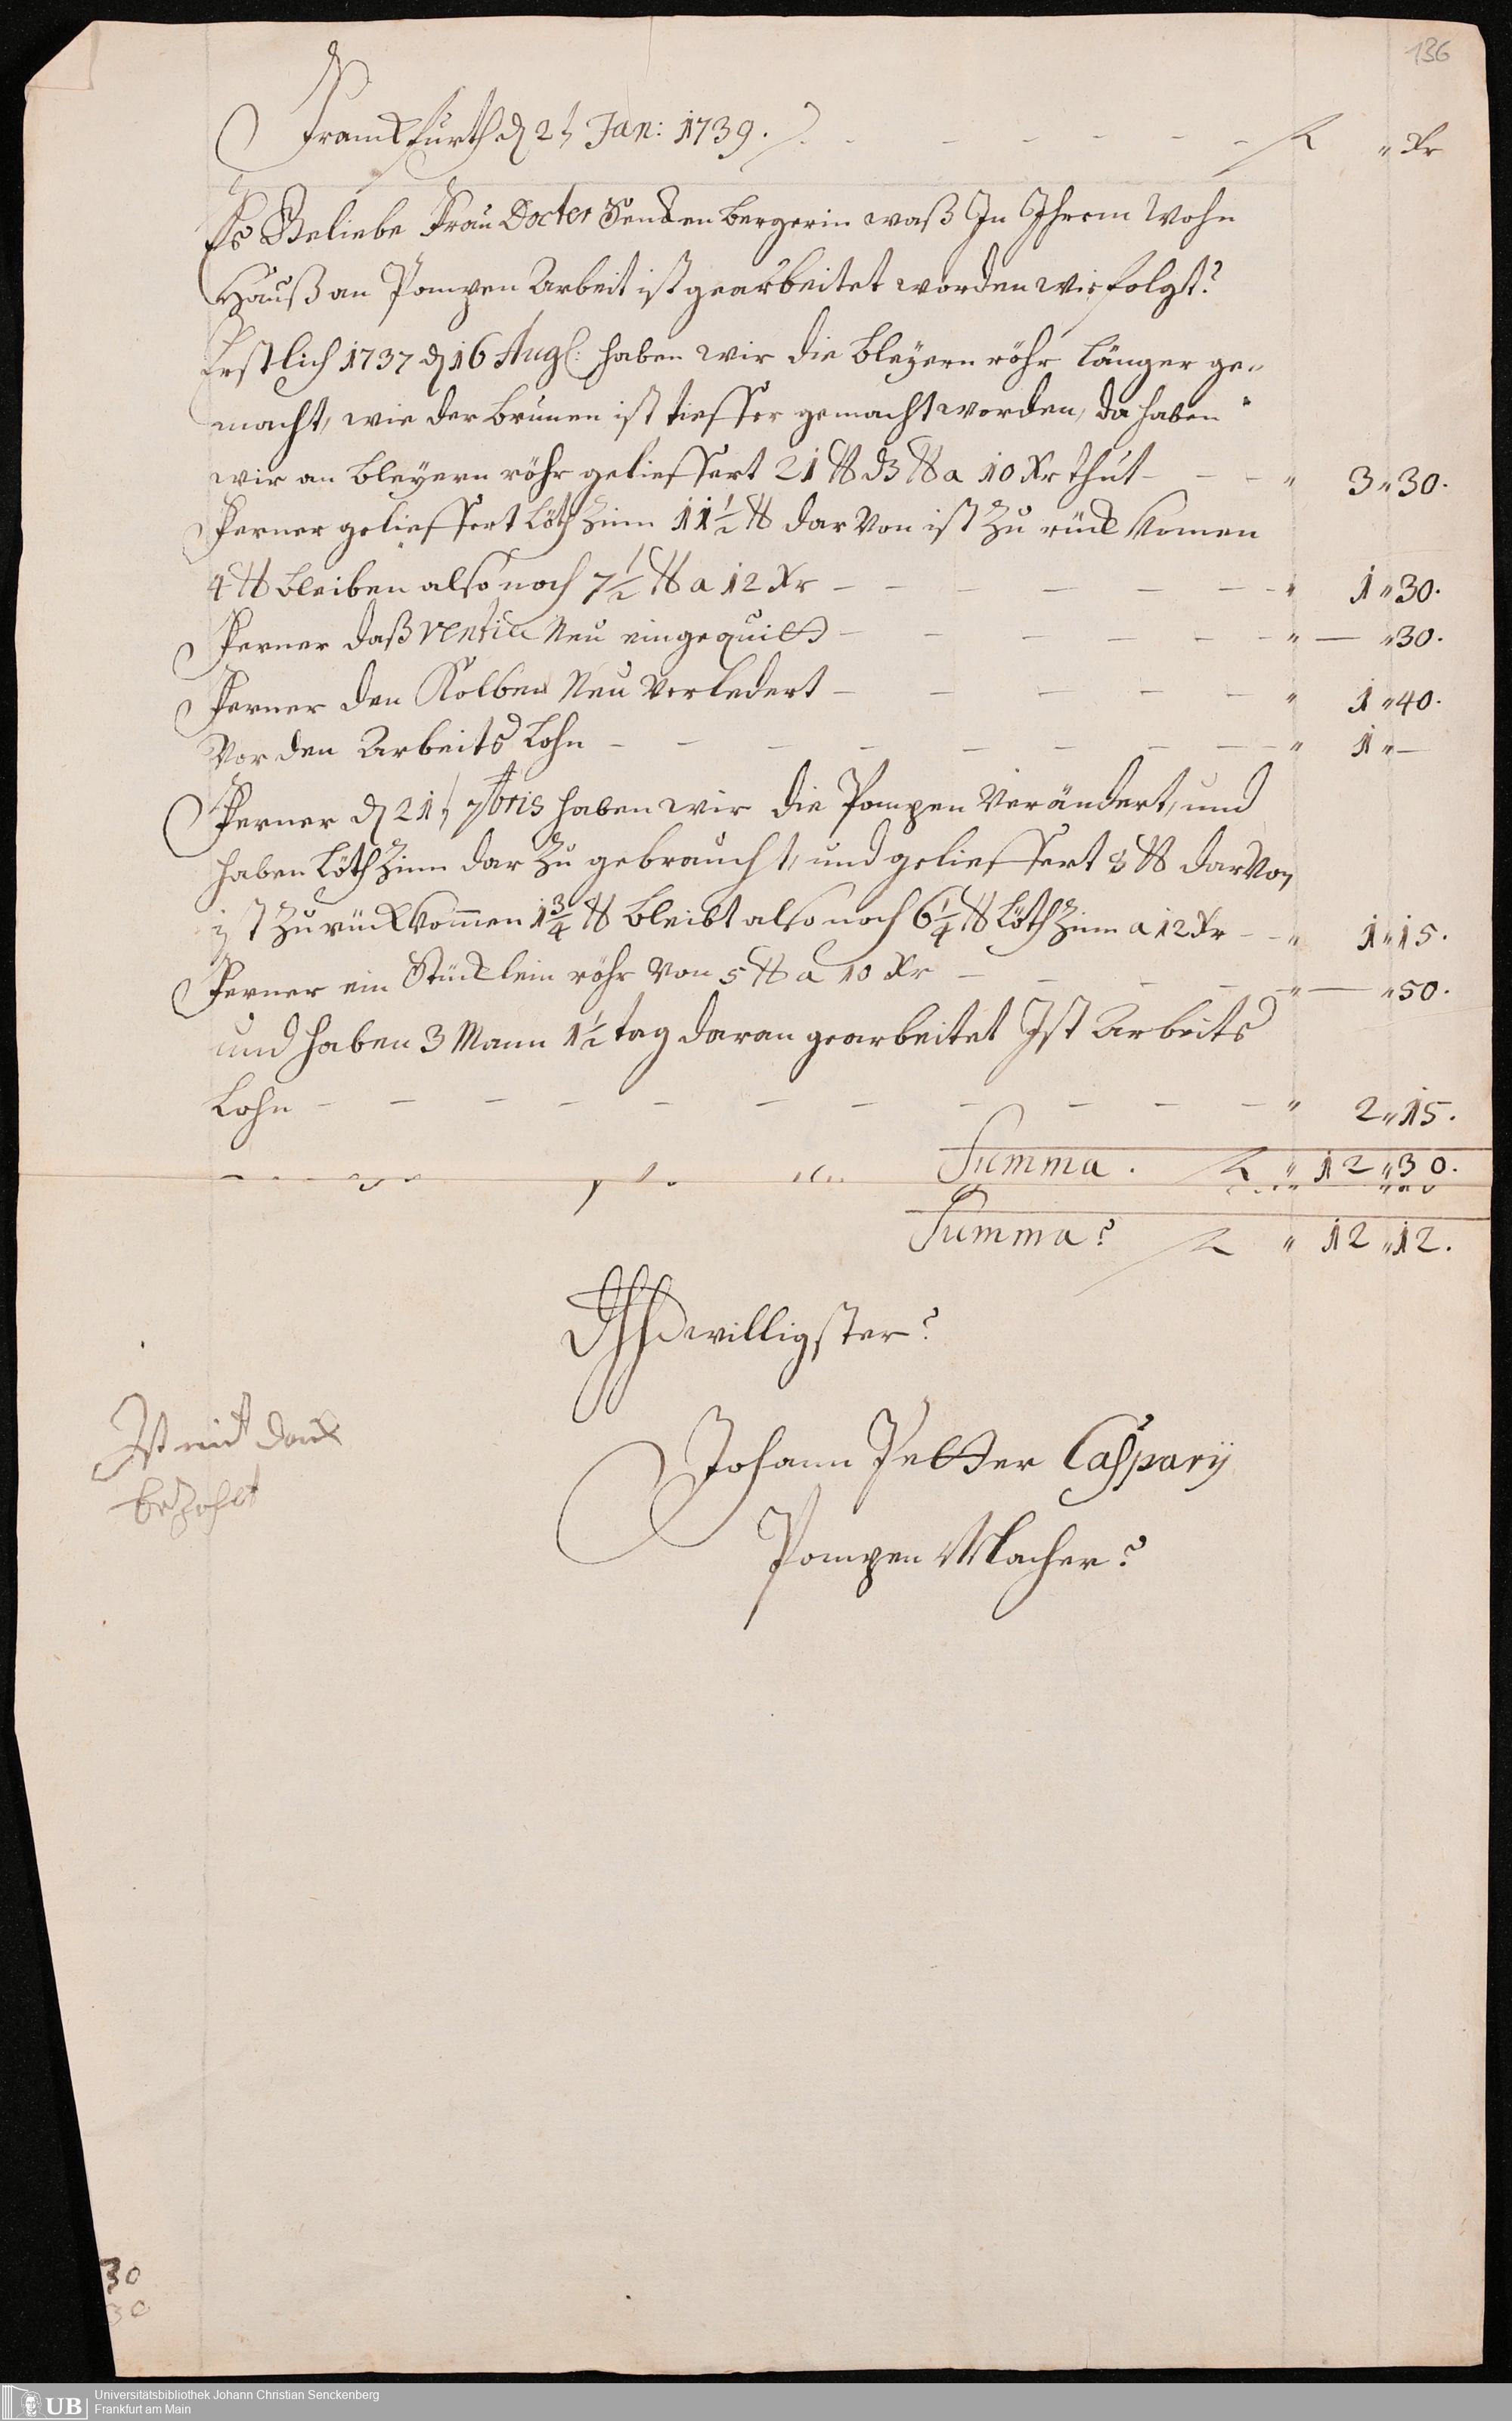 136
Franckfurth d 2t Jan: 1739. f " Xr
Es Beliebe Frau Docter Senckenbergerin waß In Ihrem Wohn
Hauß an Pompen Arbeit ist gearbeitet worden wie folgt?
Erstlich 1737 d 16 Aug: haben wir die bleyern röhr länger ge„
macht, wie der brunen ist tieffer gemacht worden, da haben
wir an bleyern röhr gelieffert 21 ℔ dz ℔ a 10 Xr thut - - - " 3 " 30.
Ferner gelieffert Löth Zinn 11½ ℔ dar Von ist Zu rück komen
4 ℔ bleiben also noch 7½ ℔ a 12 Xr - - - - - - " 1 " 30.
Ferner daß Ventiel Neu - - - - - - " — " 30.
Ferner den Kolben Neu Verledert - - - - - " 1 " 40.
Vor den Arbeits Lohn - - - - - - - - " 1 " —
Ferner d 21t 7bris haben wir die Pompen Verändert, und
haben Löth Zinn dar Zu gebraucht, und gelieffert 8 ℔ darVon
ist Zurück kommen 1¾ ℔ bleibt also noch 6¼ ℔ Löth Zinn a 12 Xr - - " 1 " 15.
Ferner ein Stücklein röhr Von 5 ℔ a 10 Xr - - - - " — " 50.
und haben 3 Mann 1½ tag daran gearbeitet Ist Arbeits
Lohn - - - - - - - - - - - " 2 " 15.
Summa. f " 12 " 30.
Summa? f " 12 " 12.
Dhlwilligster?
Johann Petter Casparÿ
Pompen Macher?
Ist mit danck
bezahlt
30
30
UB
Universitätsbibliothek Johann Christian Senckenberg
Frankfurt am Main